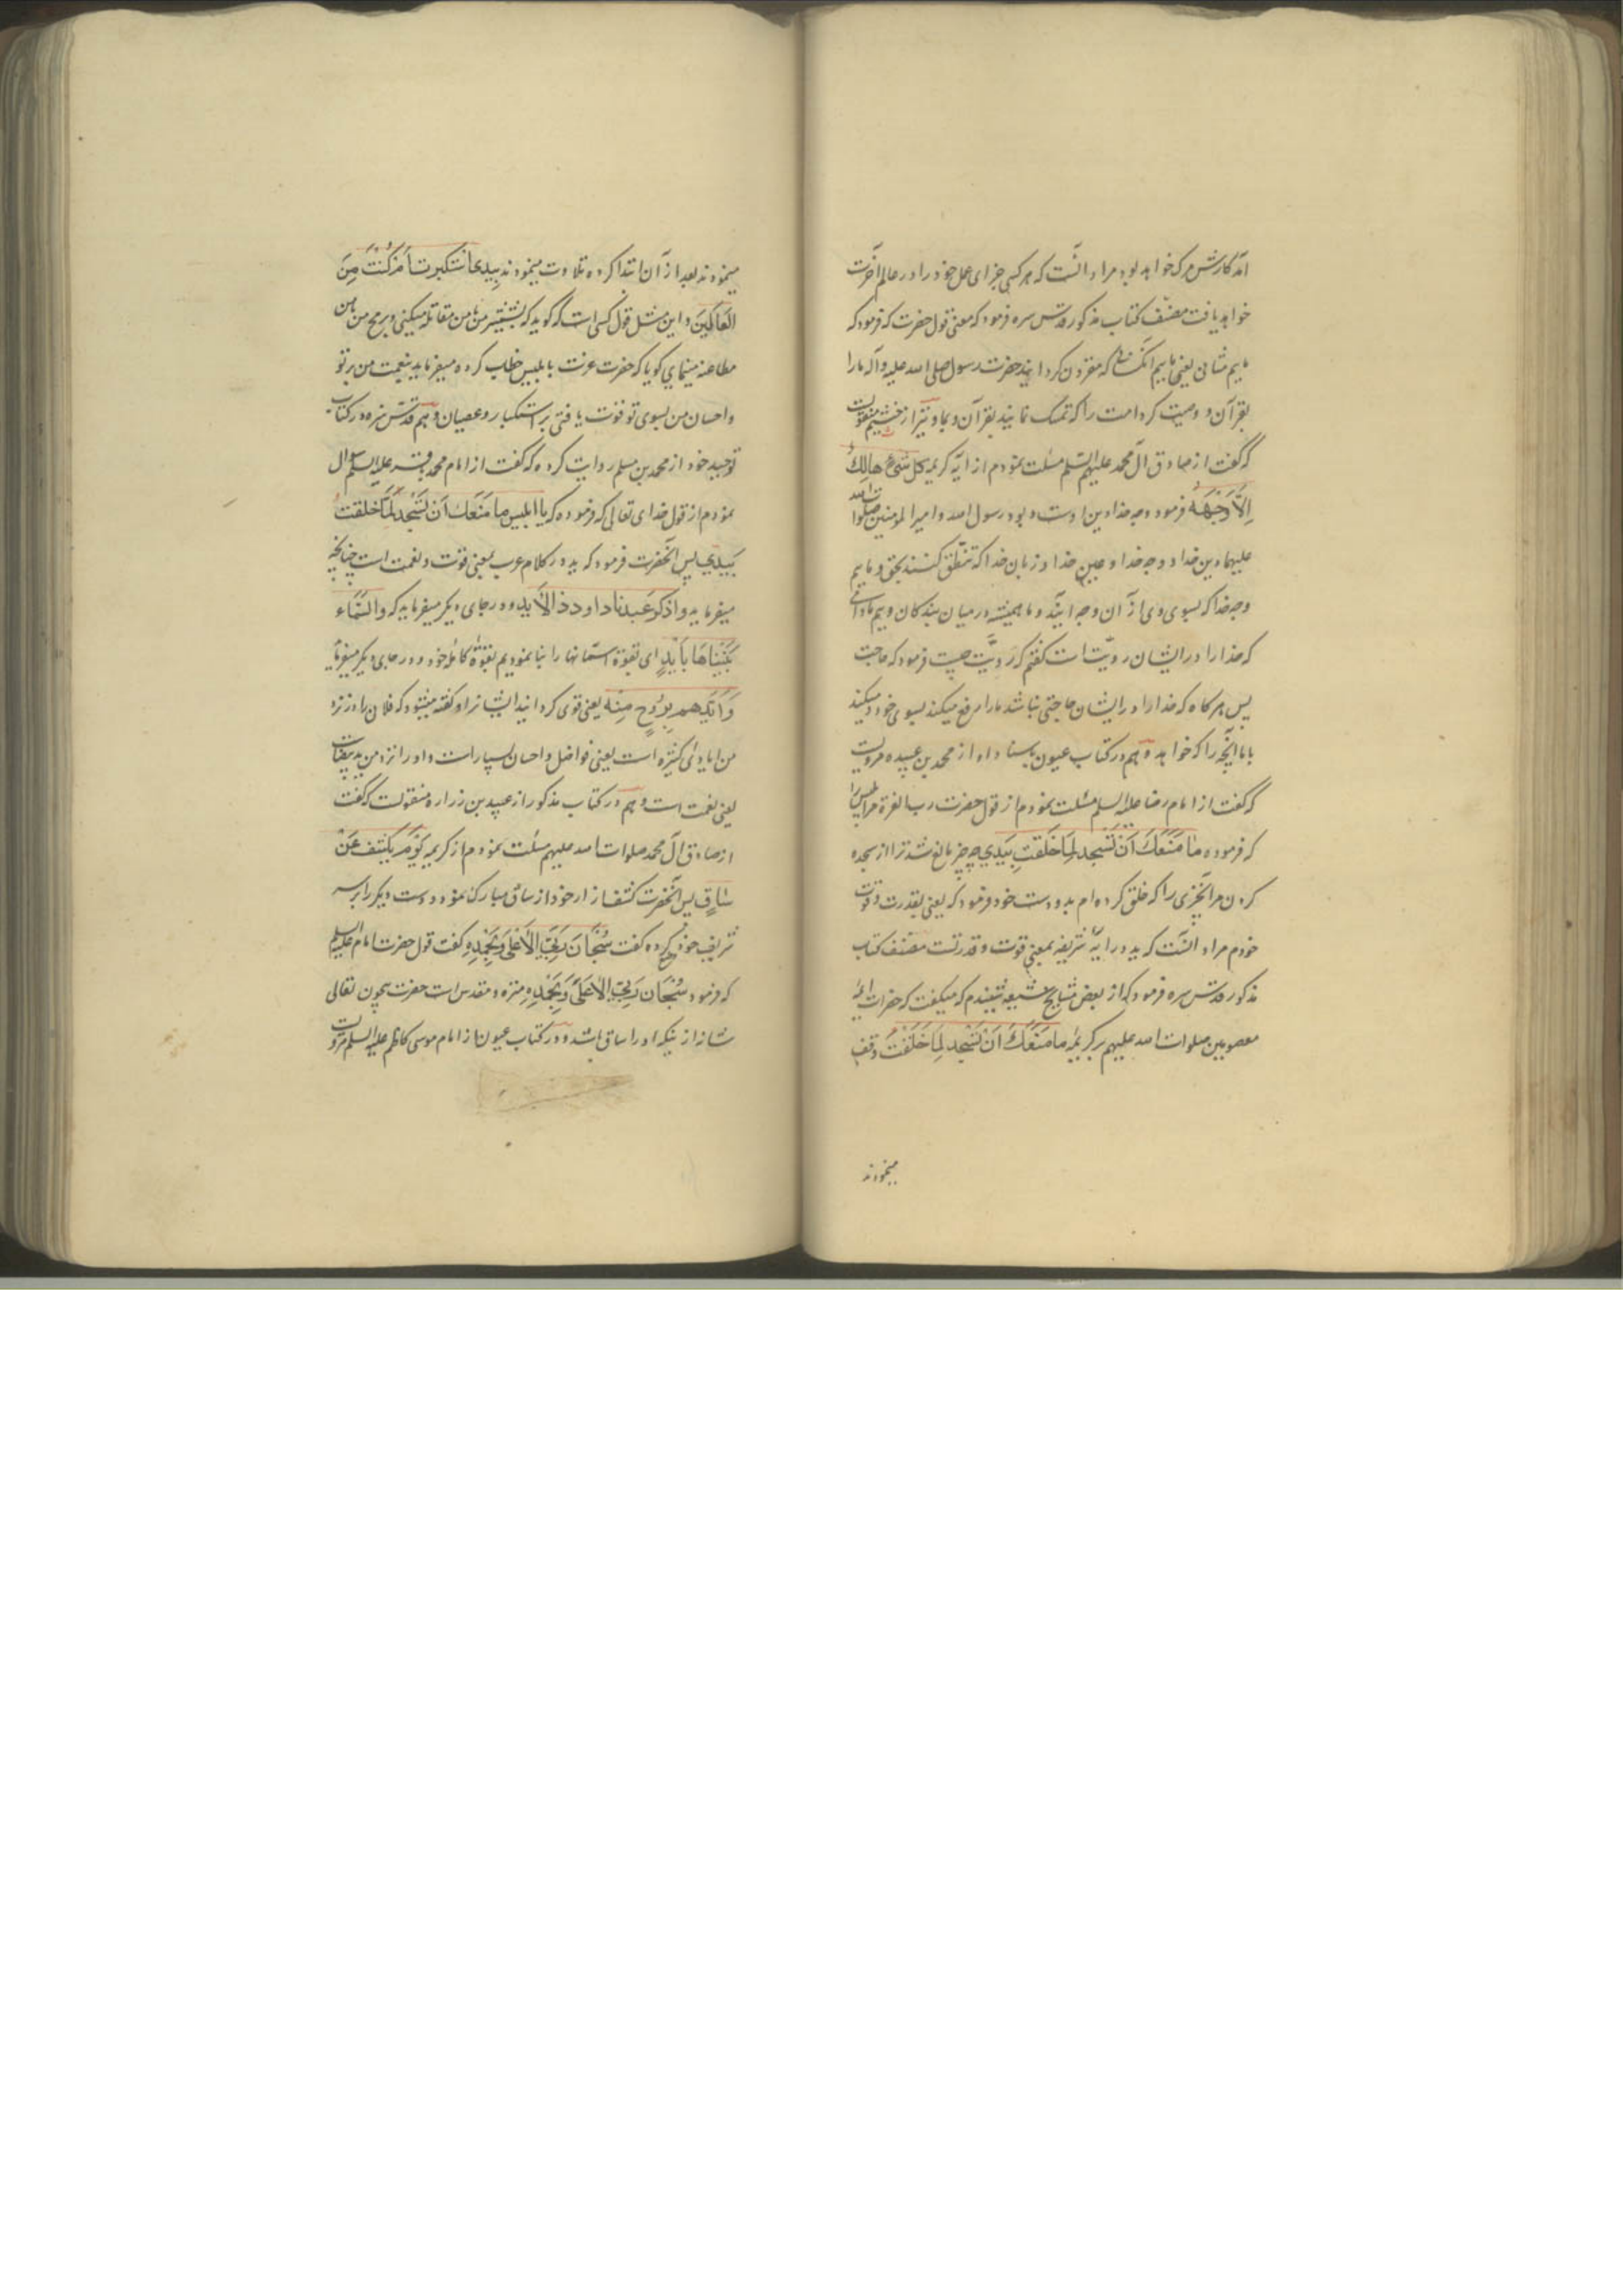 آمد کارش مرک خواهد بود مراد آنست که هر کسی جزای عمل خود را در عالم آخرت
خواهد یافت مصنّف کتاب مذکور قدّس سره فرمود که معنی قول حضرت که فرمود که
مایم مثانی یعنی مایم آنکسانی که مقرون کردانید حضرت رسول صلی الله علیه وآله مارا
بقرآن و وصیت کرد امت را که تمسک نمایند بقرآن و بما و نیز از خثیم منقولست
که گفت از صادق آل محمد علیهم السّلم مسئلت نمودم از آیه کریمه کلّ شیء هالِکٌ
اِلّا وَجْهَهُ فرمود وجه خدا دین اوست و بود رسول الله و امیر المومنین صلوات الله
علیهما دین خدا و وجه خدا و عین خدا و زبان خدا که تنطّق کنند بحق و مایم
وجه خدا که بسوی وی از آن وجه آیند و ما همیشه در میان بندکان ویم مادامی
که خدا را در ایشان رویّت است گفتم که رویَّت چیست فرمود که حاجت
پس هر کاه که خدا را در ایشان حاجتی نباشد مارا رفع میکند بسوی خود و میکند
باما آنچه را که خواهد و هم در کتاب عیون باسناد او از محمد بن عبیده مرویست
که گفت از امام رضا علیه السلم مسئلت نمودم از قول حضرت رب العزة مر ابلیس را
که فرموده ما مَنَعَکَ اَنْ تَسْجد لِمَا خَلَقتُ بِیَدی چه چیز مانع شد ترا از سجده
کردن مر آنچیزی را که خلق کرده ام بدو دست خود فرمود که یعنی بقدرت و قوت
خودم مراد آنست که ید در آیه شریفه بمعنی قوت و قدرتست مصنّف کتاب
مذکور قدّس سره فرمود که از بعض مشایخ شیعه شنیدم که میکفت که حضرات ائمه
معصومین صلوات الله علیهم بر کریمه ما مَنَعَکَ اَنْ تَسْجد لِمَا خَلَقْتُ وقف
مینمودند
مینمودند بعد از آن ابتدا کرده تلاوت مینمودند بِیَدی اَستَکبرتَ اَم کُنتَ مِنَ
العَالِینَ و این مثل قول کسی است که کوید که بشمشیر من با من مقاتله میکنی و برمح من با من
مطاعنه مینمای کویا که حضرت عزت بابلیس خطاب کرده میفرماید بنعمت من بر تو
و احسان من بسوی تو قوّت یافتی بر استکبار و عصیان و هم قدّس سره در کتاب
توحید خود از محمد بن مسلم روایت کرده که گفت از امام محمد باقر علیه السلم سوال
نمودم از قول خدای تعالی که فرموده که یا ابلیس ما مَنَعَک اَن تَسْجد لِمَا خلقت
بَیَدَیَ پس آنحضرت فرمود که ید در کلام عرب بمعنی قوّت و نعمت است چنانچه
میفرماید واذکر عَبدنا داود ذا الأَید و در جای دیکر میفرماید که والسَّمَاء
بَنَیْناهَا بأَیْدٍ ای بقوة آسمانها را بنا نمودیم بقوّة کامله خود و در جای دیکر میفرماید
وَاَیّدهم بِرُوحٍ مِنه یعنی قوی کردانید ایشانرا و کفته میشود که فلان را در نزد
من ایادی کثیره است یعنی فواضل و احسان بسیار است و او را نزد من ید بیضاست
یعنی نعمت است و هم در کتاب مذکور از عبید بن زراره منقولست که گفت
از صادق آل محمد صلوات الله علیهم مسئلت نمودم از کریمه یَوْمَ یُکشَف عَنْ
سَاقٍ پس آنحضرت کشف ازار خود از ساق مبارک نمود و دست دیکر را بر سر
شریف خود کرده گفت سُبْحَانَ رَبّیَ الاَعْلَی وَبِحَمْدِهِ گفت قول حضرت امام علیه السلم
که فرمود سُبْحَان رَبّیَ الاَعْلَی وَبِحَمْدِهِ منزه و مقدس است حضرت بیچون تعالی
شانه از اینکه او را ساق باشد و در کتاب عیون از امام موسی کاظم علیه السلم مرویست